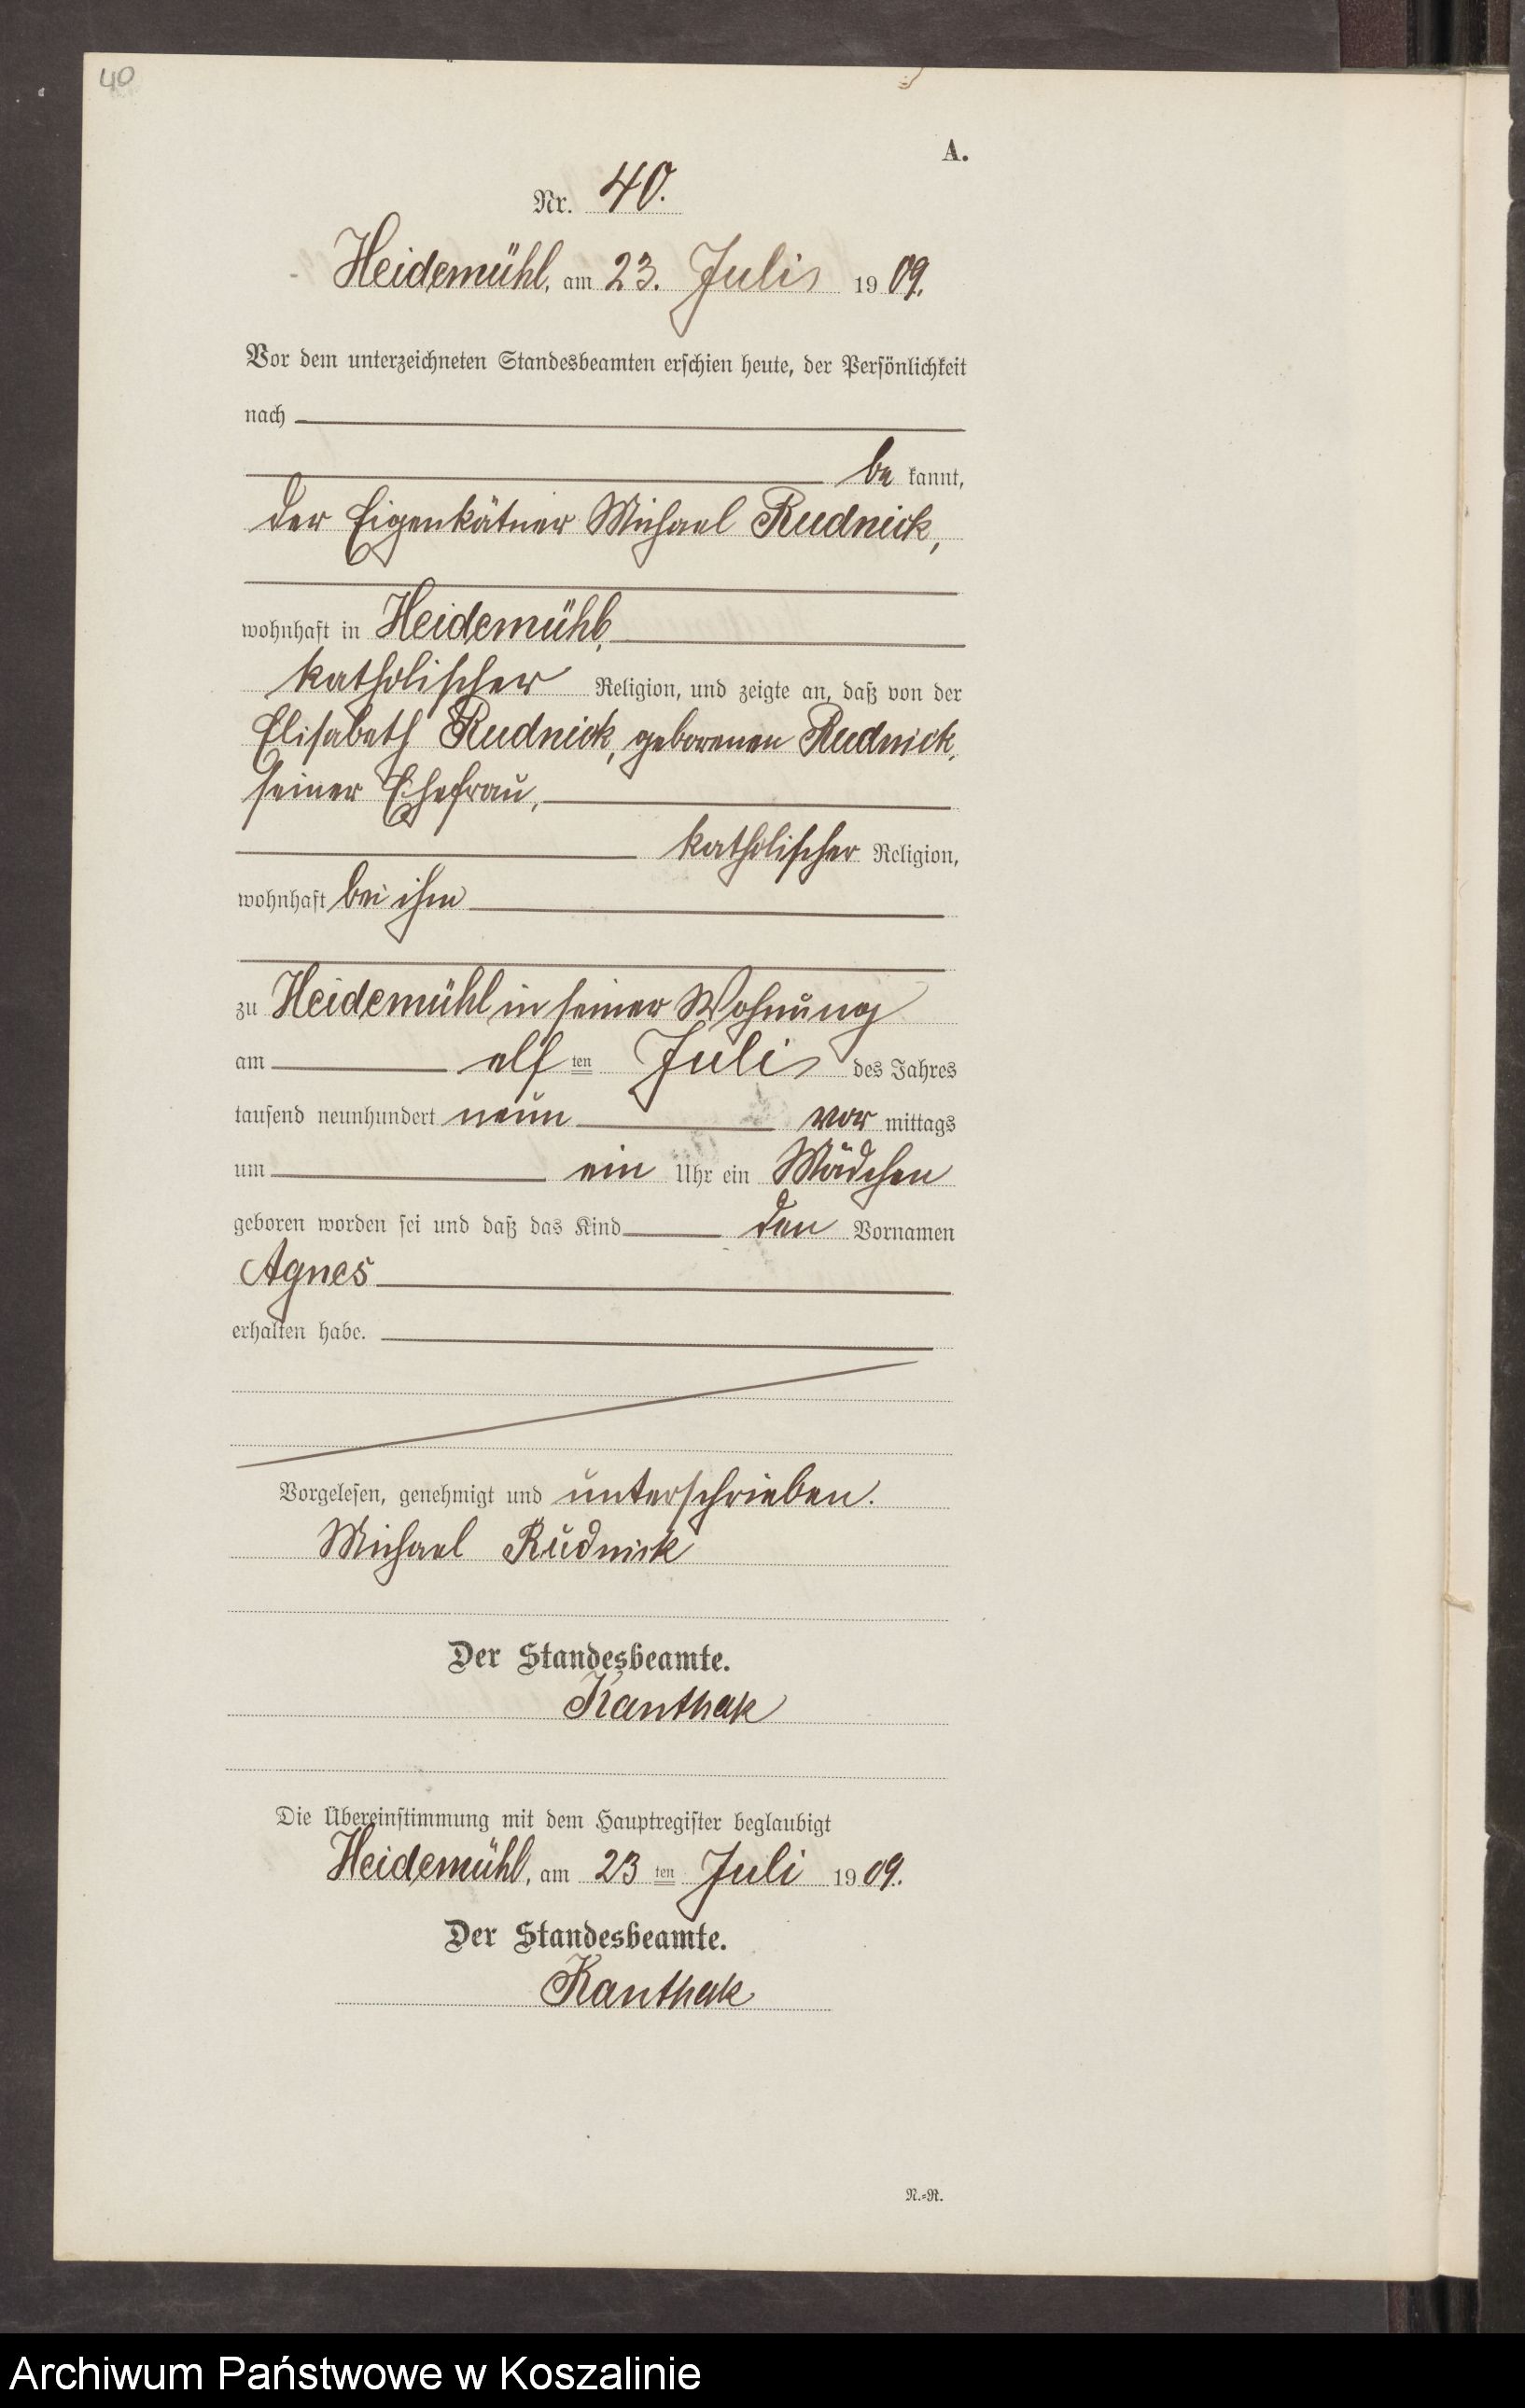 40
A.
Nr. 40.
Heidemühl, am 23. Juli 1909.
Vor dem unterzeichneten Standesbeamten erschien heute, der Persönlichkeit
nach
be kannt,
der Eigenkätner Michael Rudnick,
wohnhaft in Heidemühl,
katholischer Religion, und zeigte an, daß von der
Elisabeth Rudnick, geborenen Rudnick,
seiner Ehefrau,
katholischer Religion,
wohnhaft bei ihm
zu Heidemühl in seiner Wohnung
am elf ten Juli des Jahres
tausend neunhundert neun vor mittags
um ein Uhr ein Mädchen
geboren worden sei und daß das Kind den Vornamen
Agnes
erhalten habe.
Vorgelesen, genehmigt und unterschrieben.
Michael Rudnick
Der Standesbeamte.
Kanthak
Die Übereinstimmung mit dem Hauptregister beglaubigt
Heidemühl, am 23 ten Juli 1909.
Der Standesbeamte.
Kanthak
N.=R.
Archiwum Państwowe w Koszalinie